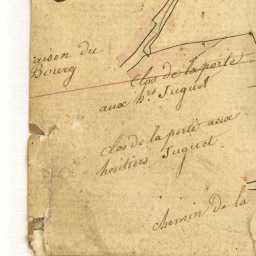 aison du
Bourg
Clos de la porte
aux h.rs Juguet
clos de la porte aux
heritiers Juguet
chemin de la